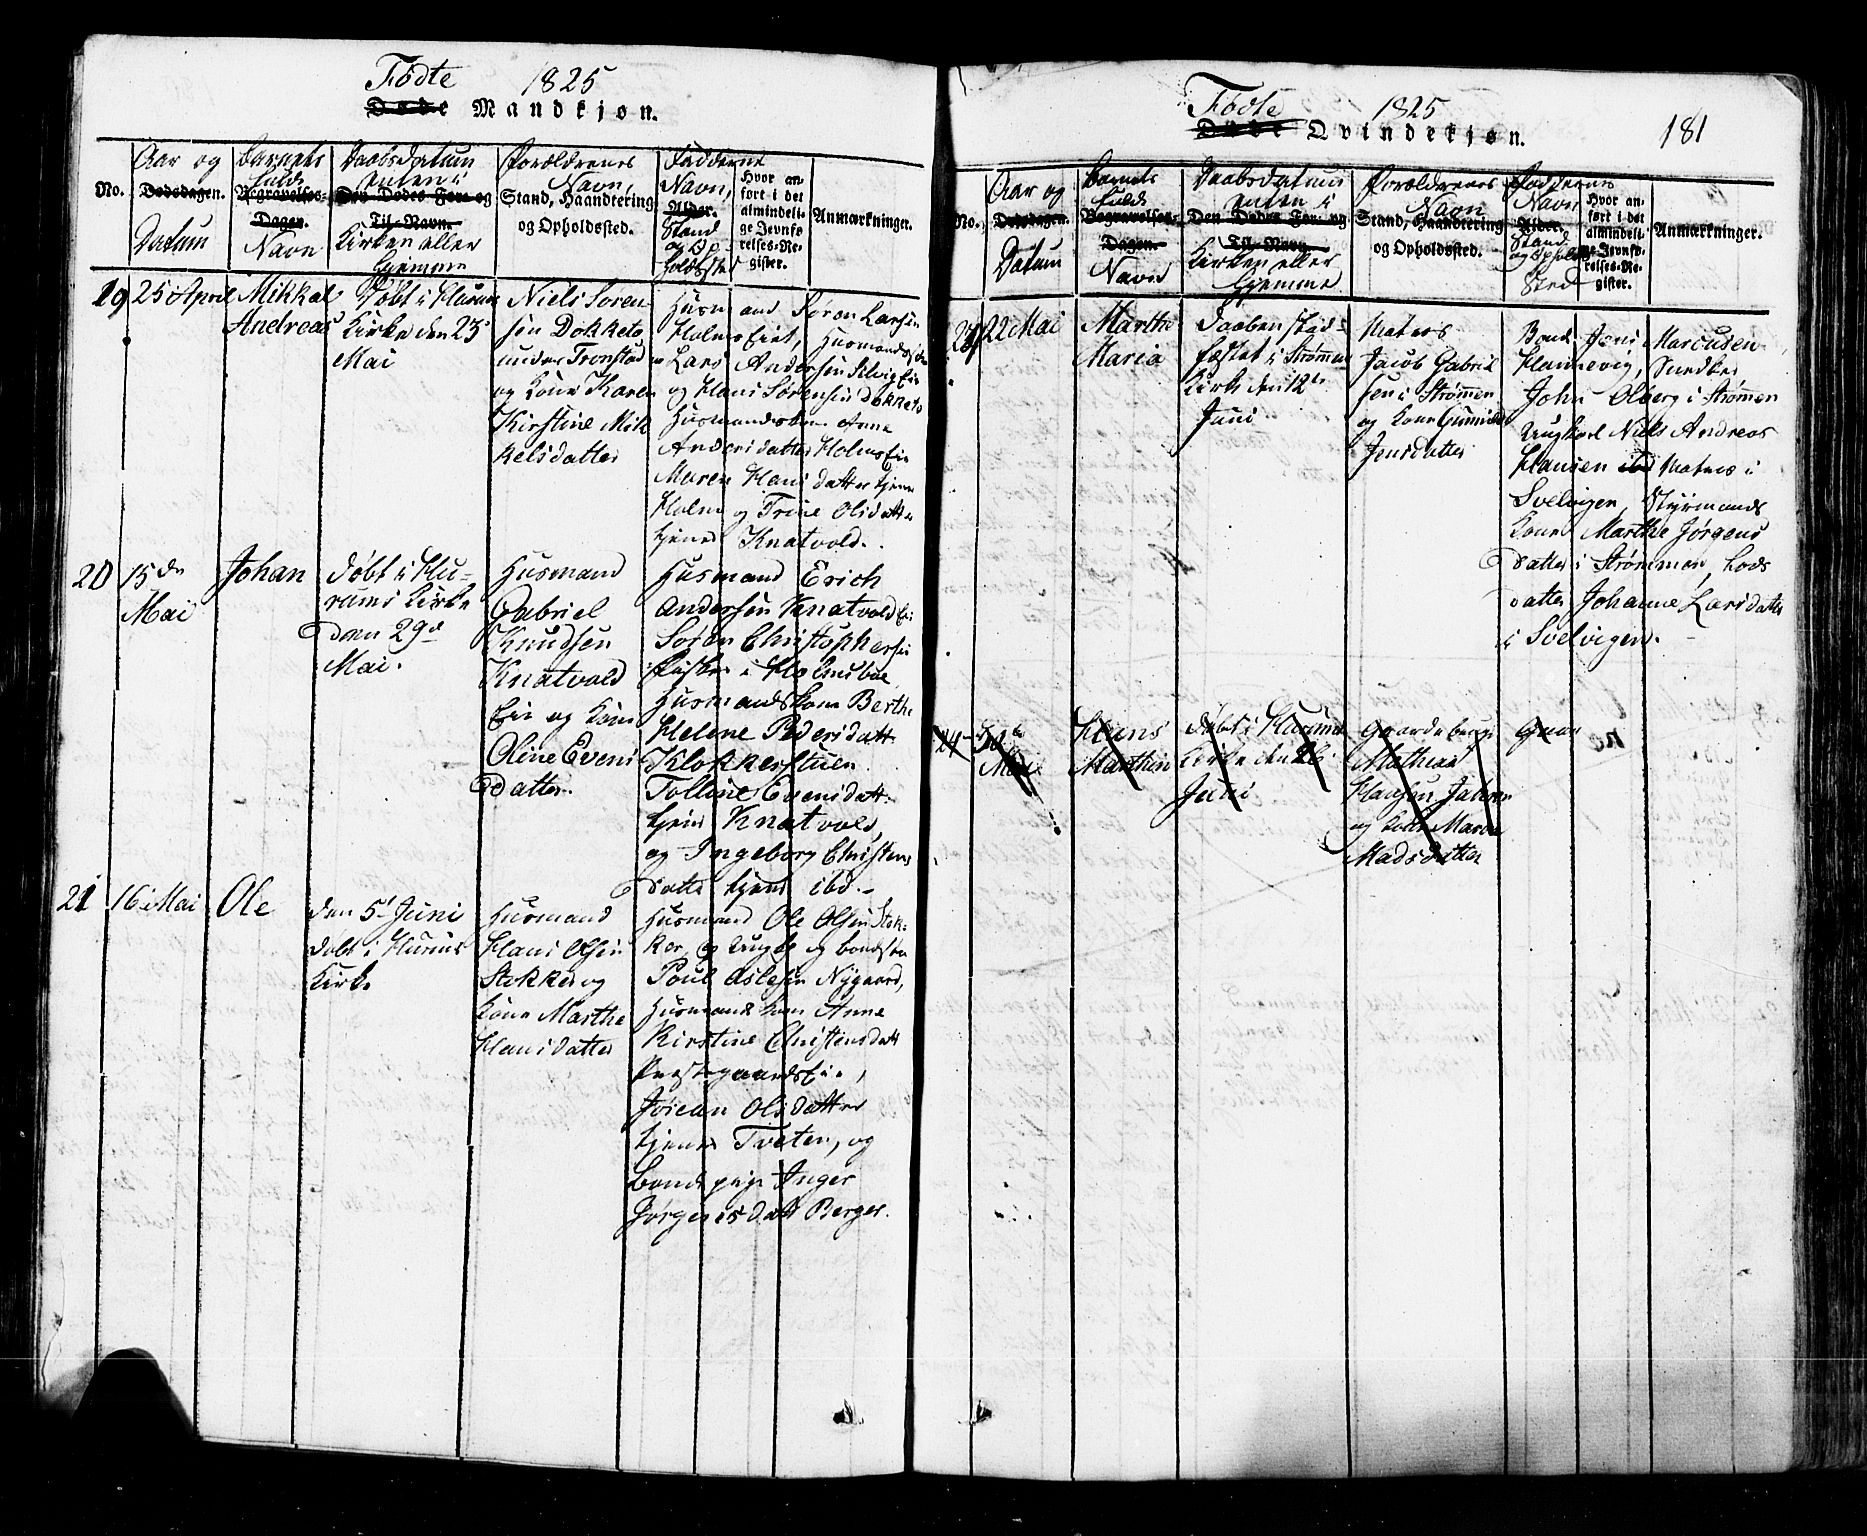 Fødte 1825
Døde Mandkjøn.
No.
Aar og
Dødsdagen.
Datum
Barnets
fulde
Begravelses-
Dagen.
Navn
Daabsdatum
enten i
Den Dødes For- og
Til-Navn.
Kirken eller
hjemme
Forældrenes
Navn,
Stand, Haandtering
og Opholdssted.
Faddernes
Navn,
Alder.
Stand
og Op-
holdssted
Hvor an-
ført i det
almindeli-
ge Jevnfø-
relses-Re-
gister.
Anmærkninger.
19
25 April
Mikkel
Andreas
Døbt i Hurum
Kirke den 23
Mai
Niels Soren
sen Dokketo
under Tronstad
og Kone Karen
Kirstine Mik
kelsdatter
Husmand Søren Larsen
Holms Eiet, Husmandss
Lars Andersen Selvig Eie
og Hans Sørensen Dokketo
Husmandskone Anne
Andersdatter Holms Eie
Maren Hansdatter tjene
Holm og Trine Olsdatter
tjene Knatvold.
20
15de
Mai
Johan
døbt i Hu-
rums Kirke
den 29de
Mai.
Husmand
Gabriel
Knudsen
Knatvold
Eie og Kone
Oline Evens
datter.
Husmand Erich
Andersen Knatvold Eie
Søren Christophersen
Fisker i Holmsboe
Husmandskone Berthe
Helene Pedersdatt
Klokkerstuen
Tolline Evensdatt.
tjene Knatvold,
og Ingeborg Christens
datter tjene ibd.-
21
16 Mai
Ole
den 5 Juni
døbt i Hurum
Kirke
Husmand
Hans Olsen
Stokker og
Kone Marthe
Hansdatter
Husmand Ole Olsen Stok-
ker, og bonde
Poul Aslesen Nygaard,
Husmandskone Anne
Kirstine Christensdatt
Prestegaards Eie,
Jøran Olsdatter
tjener Tveten, og
Bondepige Inger
Jørgensdatt Berger.
Fødte 1825
Døde Qvindekjøn.
181
No.
Aar og
Dødsdagen.
Datum
Barnets
fulde
Begravelses-
Dagen.
Navn
Daabsdatum
enten i
Den Dødes For- og
Til-Navn.
Kirken eller
hjemme
Forældrenes
Navn
Stand, Haandtering
og Opholdssted.
Faddernes
Navn
Alder.
Stand
og Ophold
Sted
Hvor an-
ført i det
almindeli-
ge Jevnfø-
relses-Re-
gister.
Anmærkninger.
22 Mai
Marthe
Maria
Daaben stad-
fæstet i Strømmen
Kirke den 12te
Juni
Matros
Jacob Gabriel
sen i Strømmen
og Kone Gunnild
Jensdatter
Bonde Jens Marcusen
Hannevig, Smedker
John Olberg i Strømmen
Ungkarl Niels Andreas
Hansen ibd Matros i
Svelvigen, Styrmands
Kone Marthe Jørgens
datter i Strømmen, Lods
datter Johanne Larsdatter
i Svelvigen.
24
30te
Mai
Hans
Marthin
døbt i Hurum
Kirke den 26
Juni
Gaardbruger
Mathias
Hansen
og Kone Maren
Madsdatter